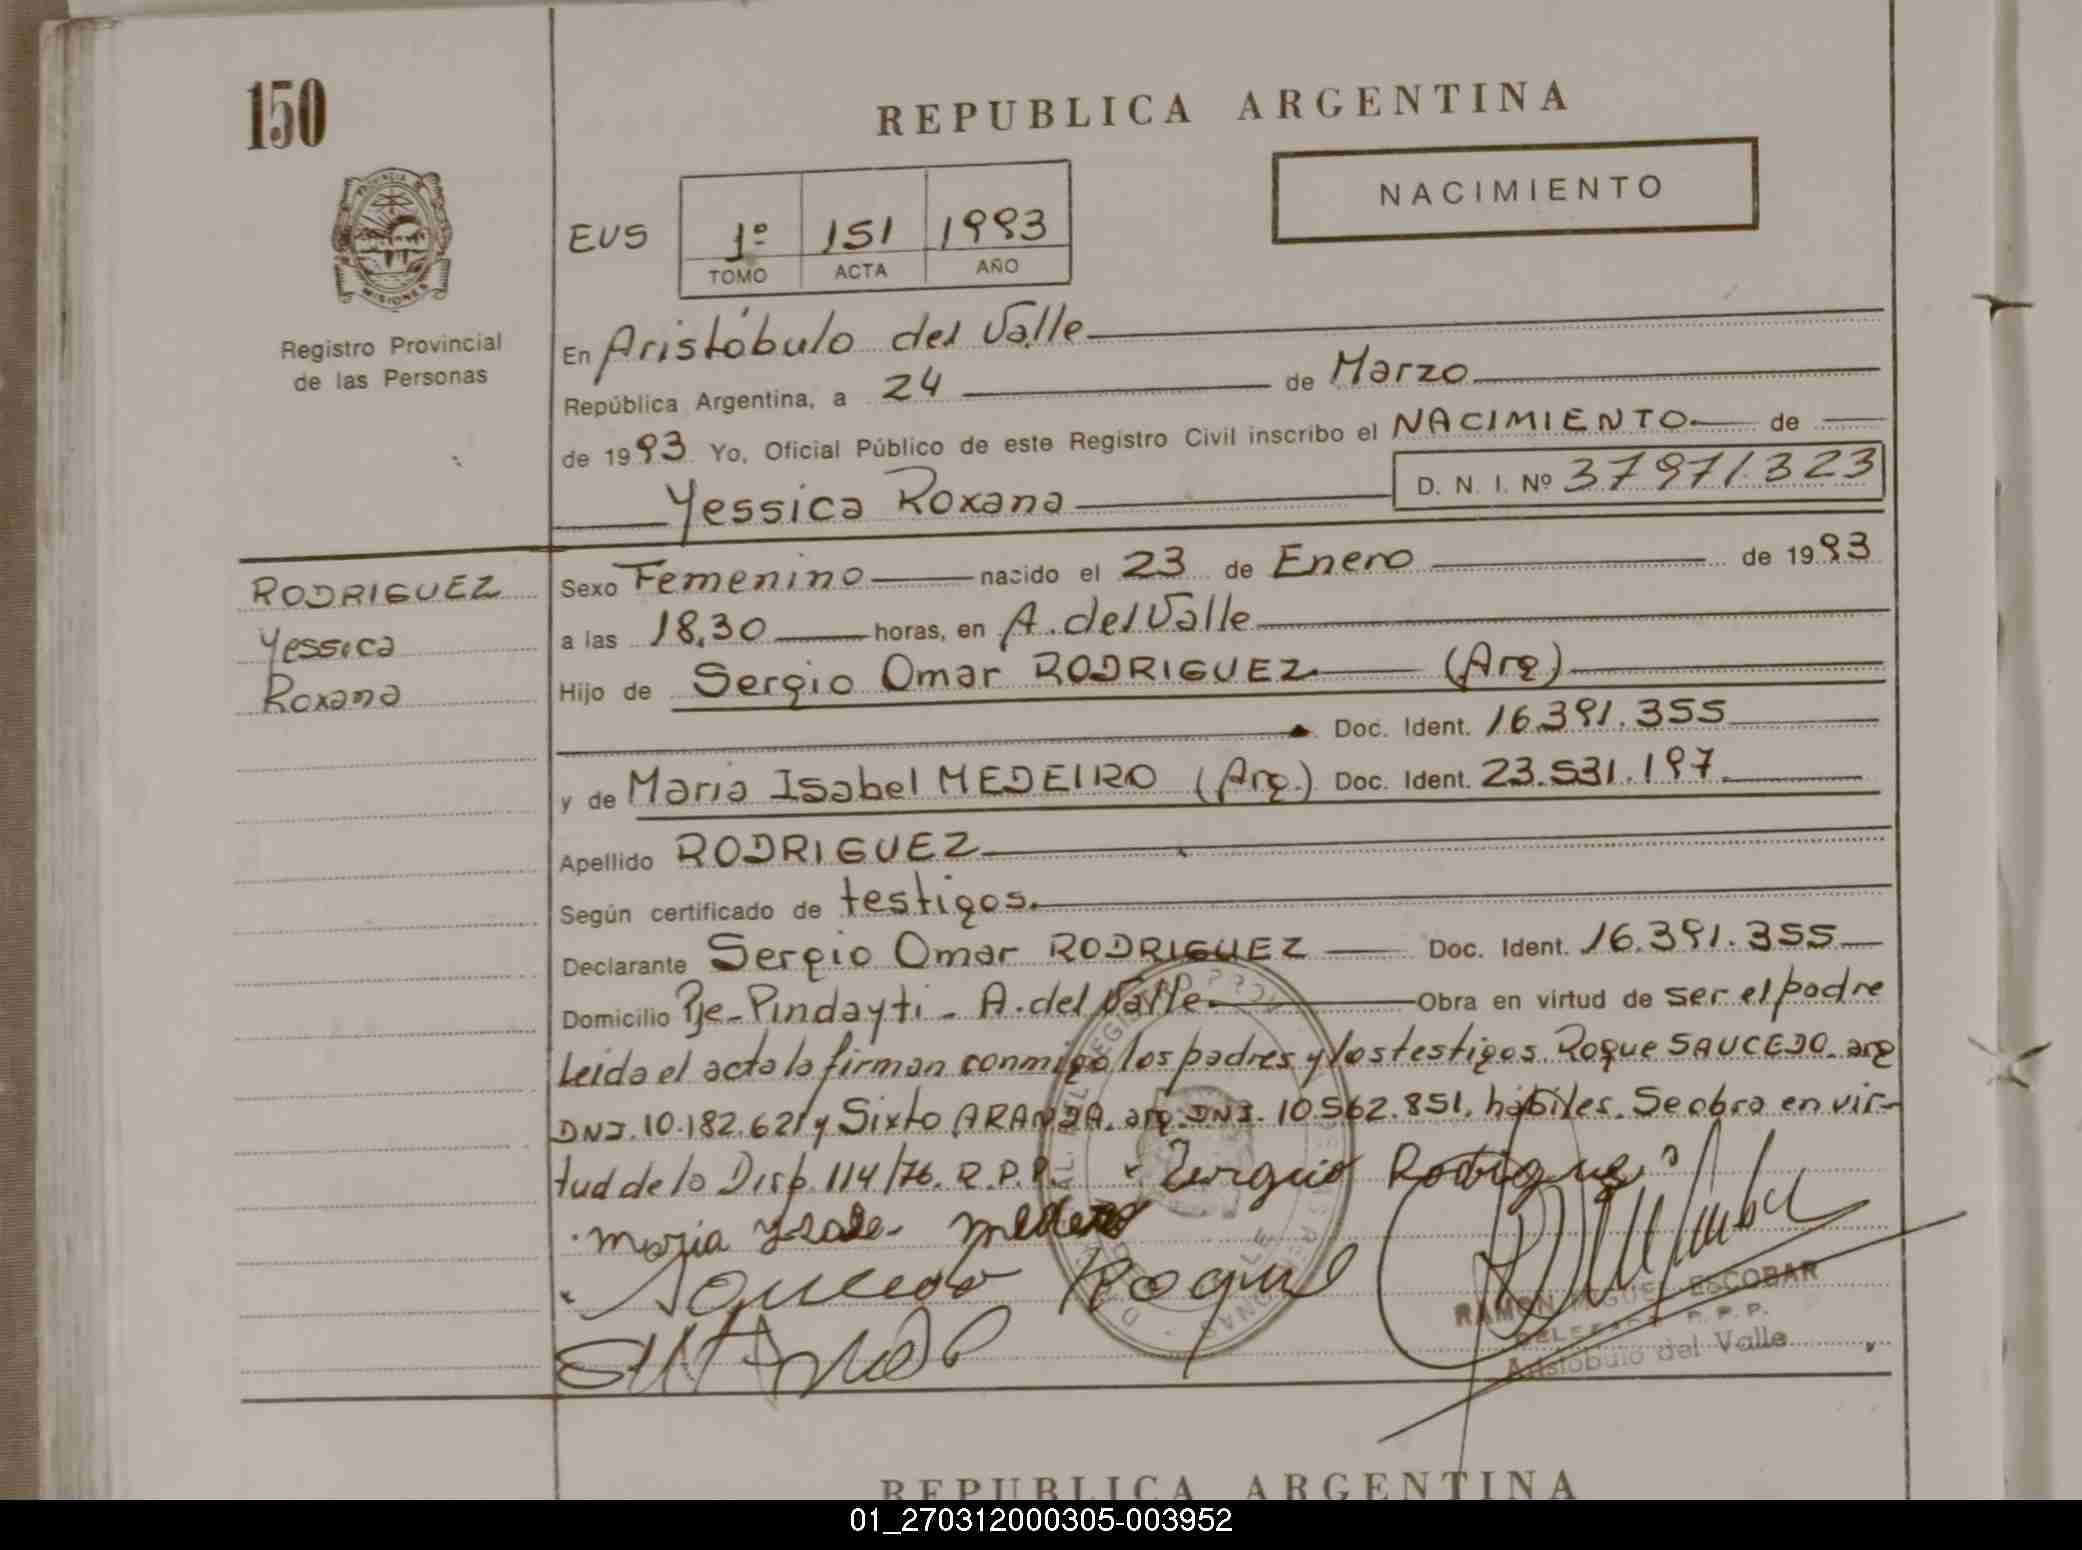 150
REPUBLICA ARGENTINA
NACIMIENTO
PROVINCIA DE
MISIONES
Registro Provincial
de las Personas
EUS 1º 151 1993
TOMO ACTA AÑO
En Aristóbulo del Valle
República Argentina, a 24 de Marzo
de 1993 Yo, Oficial Público de este Registro Civil inscribo el NACIMIENTO de
Yessica Roxana D. N. I. Nº 37971323
RODRIGUEZ
Yessica
Roxana
Sexo Femenino nacido el 23 de Enero de 1993
a las 18,30 horas, en A. del Valle
Hijo de Sergio Omar RODRIGUEZ (Arg)
Doc. Ident. 16.391.355
y de Maria Isabel MEDEIRO (Arg.) Doc. Ident. 23.531.197
Apellido RODRIGUEZ
Según certificado de testigos.
Declarante Sergio Omar RODRIGUEZ Doc. Ident. 16.391.355
Domicilio Pje- Pindayti - A. del Valle Obra en virtud de ser el padre
Leida el acta la firman conmigo los padres y los testigos. Roque SAUCEDO. arg
DNI. 10.182.621 y Sixto ARANDA. arg. DNI. 10.562.851. hábiles. Se obra en vir-
tud de la Disp. 114/76. R.P.P. Rodrigue
Maria
Roque
RAMON MIGUEL ESCOBAR
R.P.P.
Aristobulo del Valle
REPUBLICA ARGENTINA
01_270312000305-003952